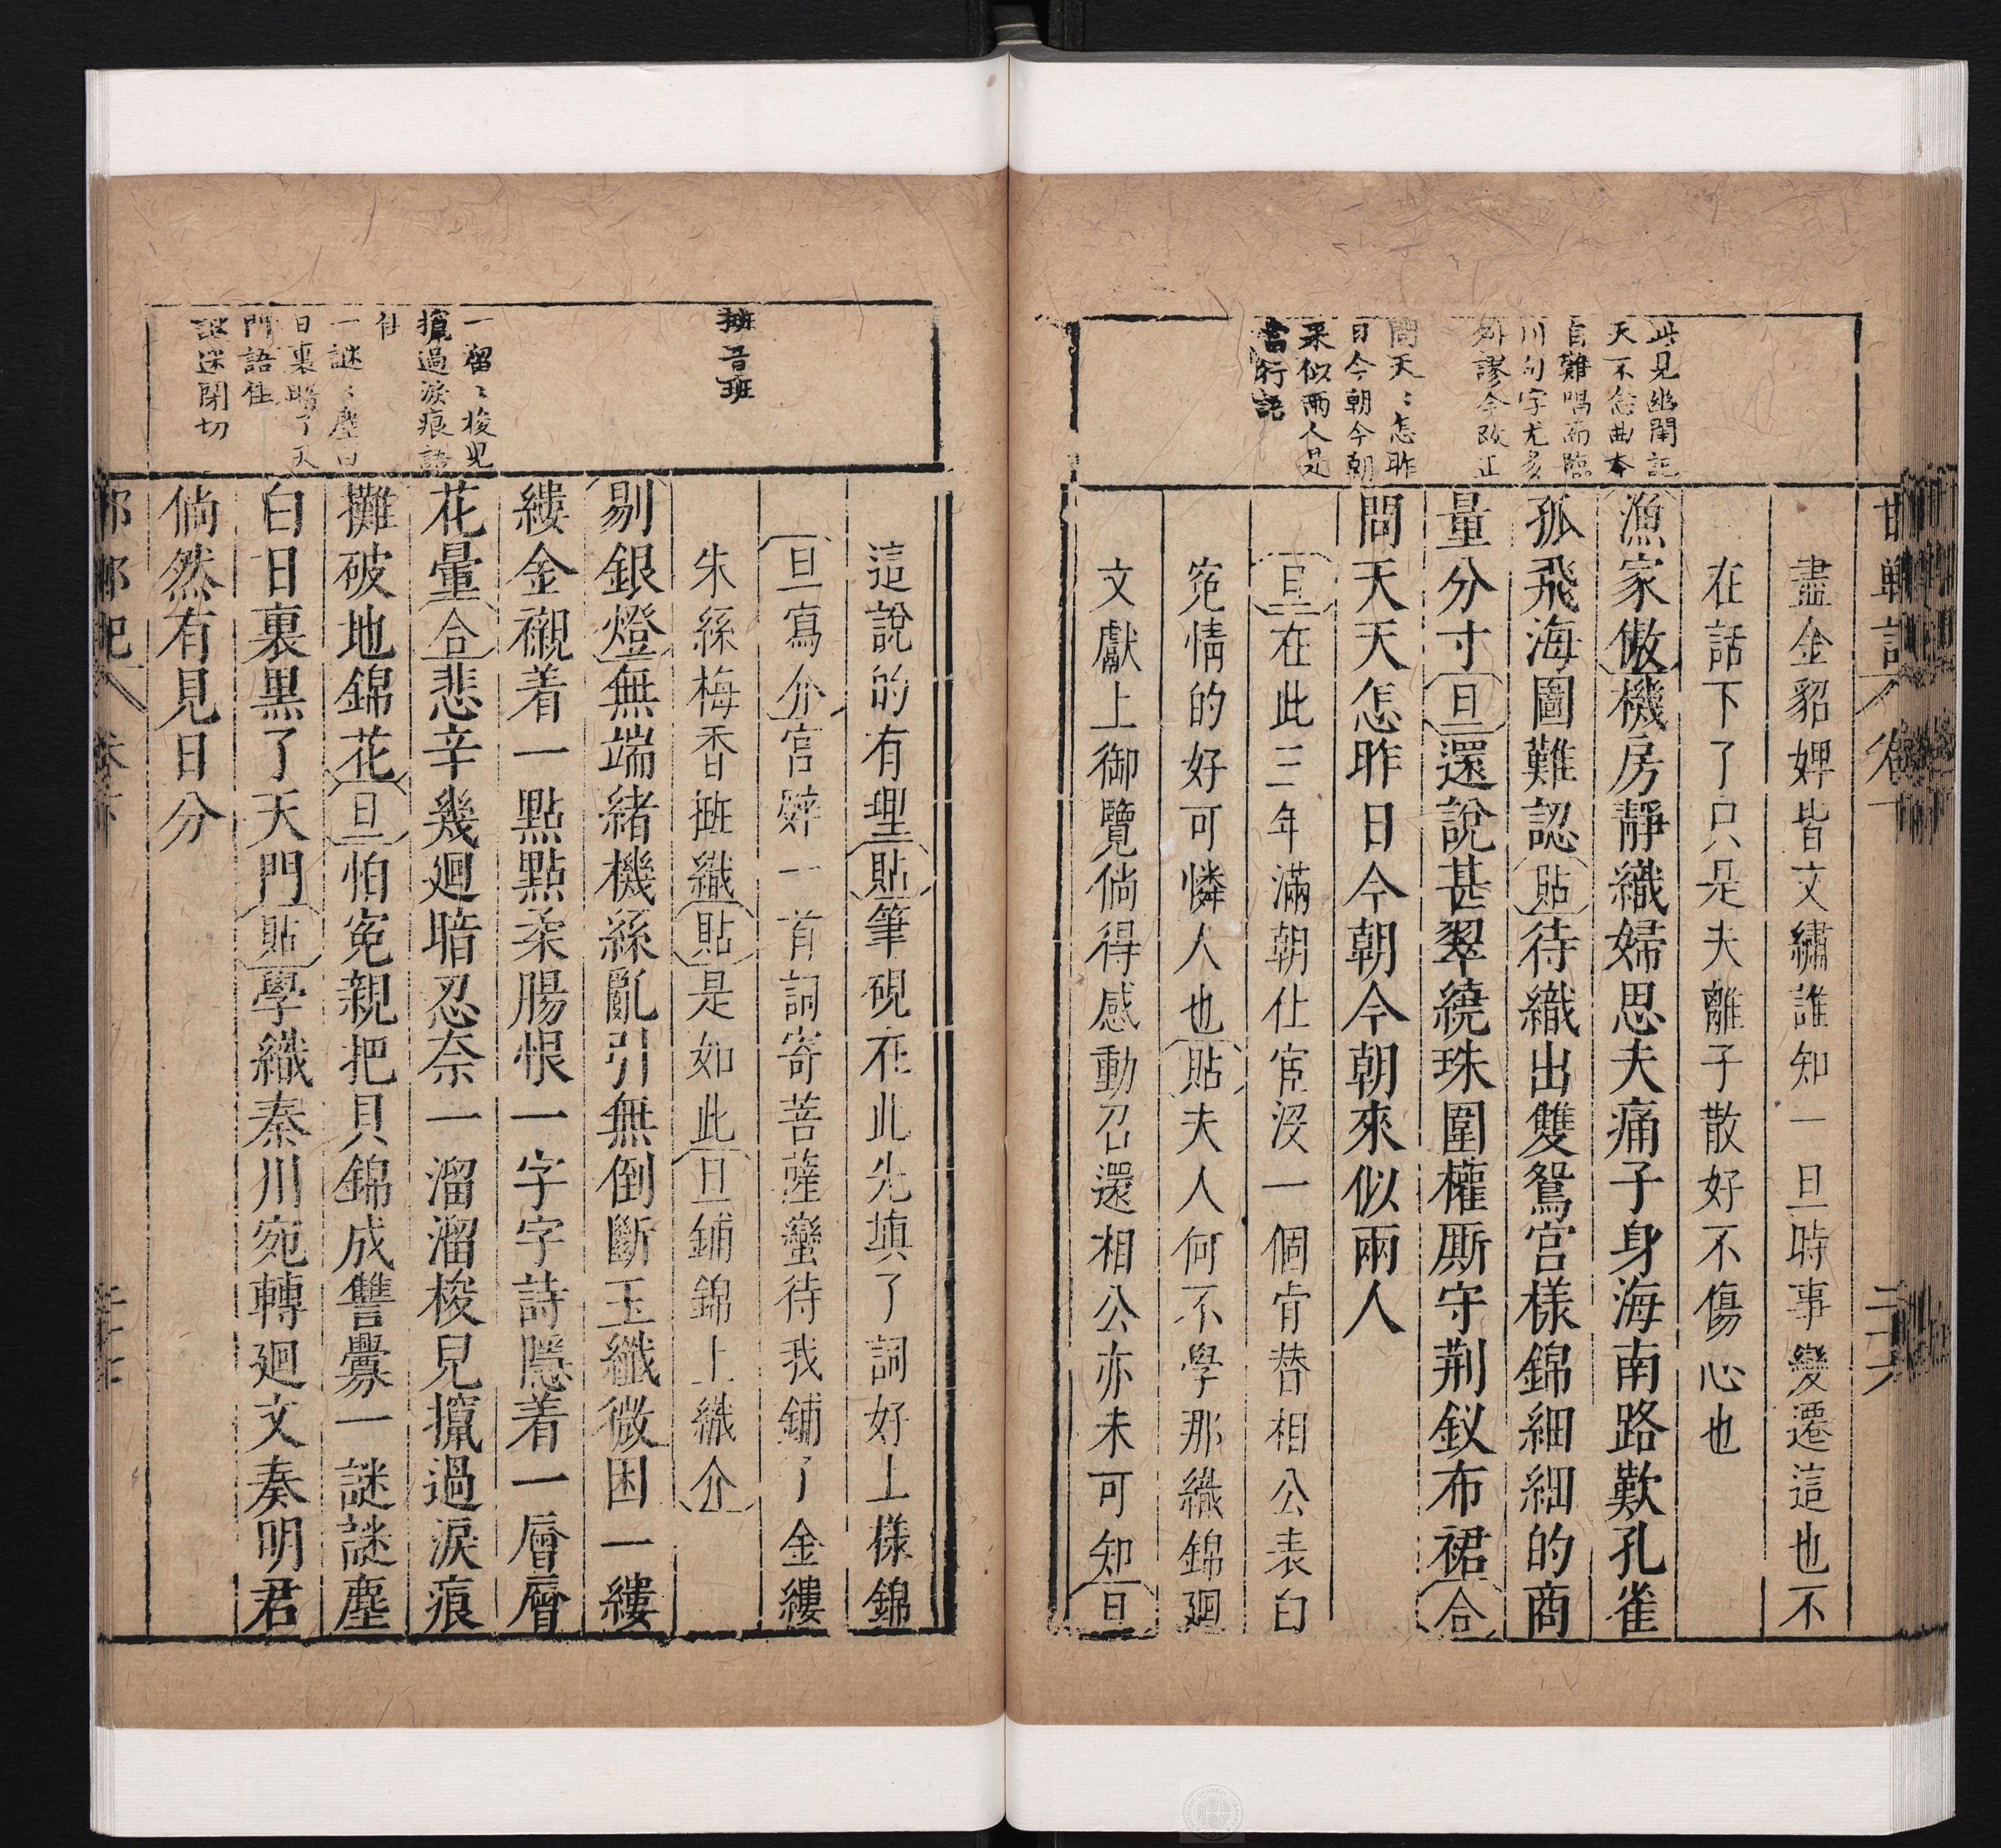 此見幽閨記
天不念曲本
自難唱而臨
川句字尤多
舛謬今改正
問天〻怎昨
日今朝今朝
來似兩人是
當行語
盡金貂婢皆文繡誰知一旦時事變遷這也不
在話下了只是夫離子散好不傷心也
漁家傲機房靜織婦思夫痛子身海南路歎孔雀
孤飛海圖難認貼待織出雙鴛宮樣錦細細的商
量分寸旦還說甚翠繞珠圍權厮守荆釵布裙合
問天天怎昨日今朝今朝來似兩人
旦在此三年滿朝仕宦沒一個肯替相公表白
宛情的好可憐人也貼夫人何不學那織錦廻
文獻上御覽倘得感動召還相公亦未可知旦
攡音班
一溜〻梭兒
攛過淚痕語
佳
一謎〻塵白
日裏黑了天
門語佳
謎迷閉切
這說的有理貼筆硯在此先填了詞好上樣錦
旦寫介官辭一首詞寄菩薩蠻待我鋪了金縷
朱絲梅香攡織貼是如此旦鋪錦上織介
剔銀燈無端緒機絲亂引無倒斷玉纖微困一縷
縷金襯着一點點柔腸恨一字字詩隱着一層層
花暈合悲辛幾廻暗忍奈一溜溜梭兒攛過淚痕
攤破地錦花旦怕寃親把貝錦成讐釁一謎謎塵
白日裏黒了天門貼學織秦川宛轉廻文奏明君
倘然有見日分
邯鄲記 卷下